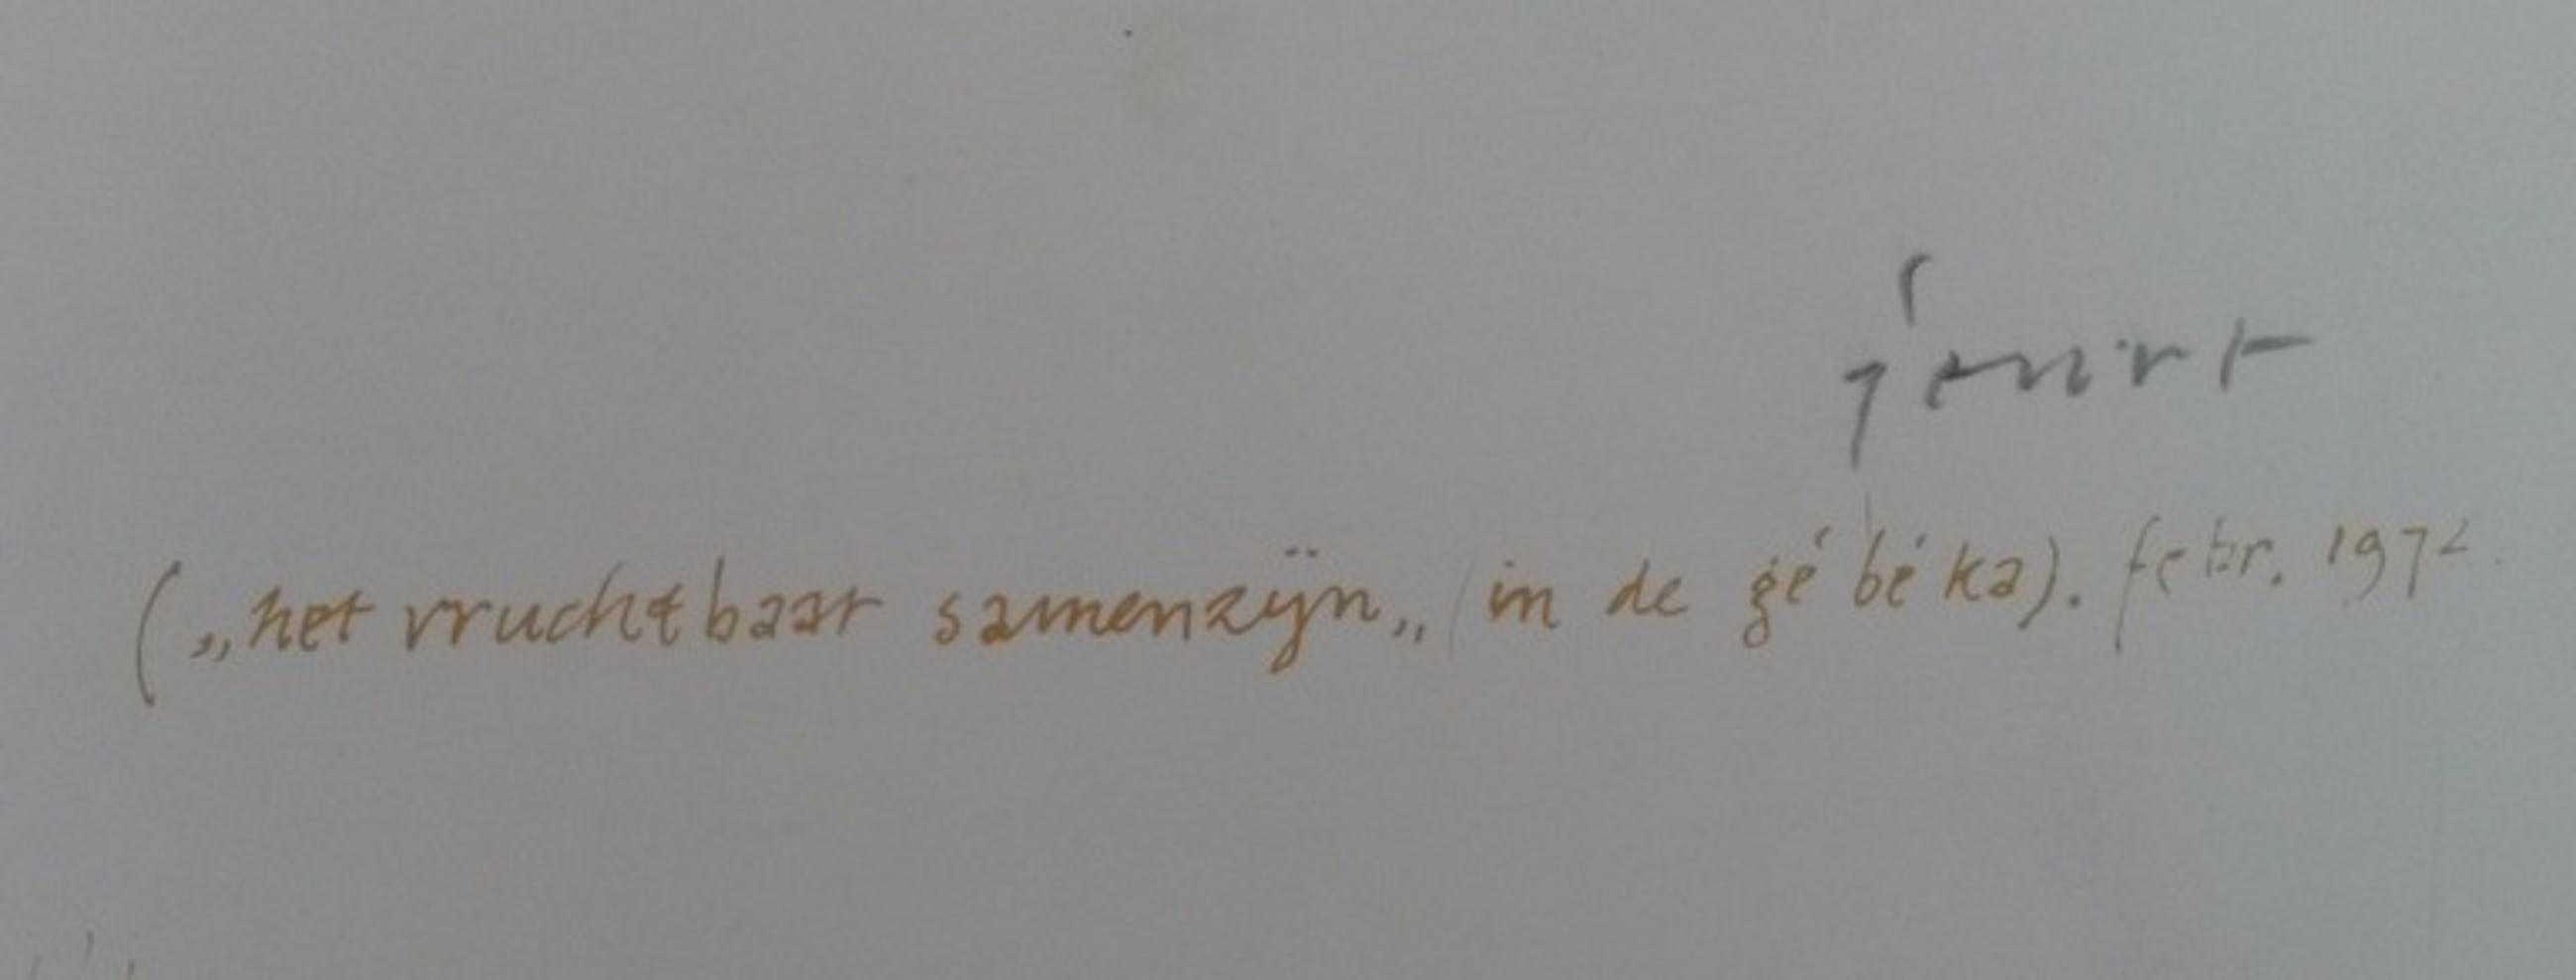 („het vruchtbaar samenzijn„ in de gé bé ka). febr. 1972.